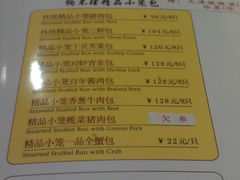 狗不理精品小笼包
传统精品小笼猪肉包 ￥98元/8只
Steamed Stuffed Bun with Pork
传统精品小笼三鲜包 ￥109元/8只
Steamed Stuffed Bun with Three Fresh
精品小笼干贝芥菜包 ￥120元/8只
Steamed Stuffed Bun with
精品小笼对虾青韭包 ￥128元/8只
Steamed Stuffed Bun with Shrimp Leek
精品小笼百年酱肉包 ￥128元/8只
Steamed Stuffed Bun with Braised Pork
精品小笼香葱牛肉包 ￥128元/8只
Steamed Stuffed Bun with Beef
精品小笼榄菜猪肉包 欠奉
Steamed Stuffed Bun with Greens Pork
精品小笼一品全蟹包 ￥22元/只
Steamed Stuffed Bun with Crab